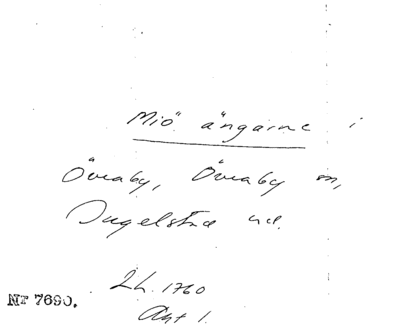 Miö ängarne i
Övraby, Övraby sn,
Ingelstad hd.
2 h. 1760
Akt 1.
NF 7690.